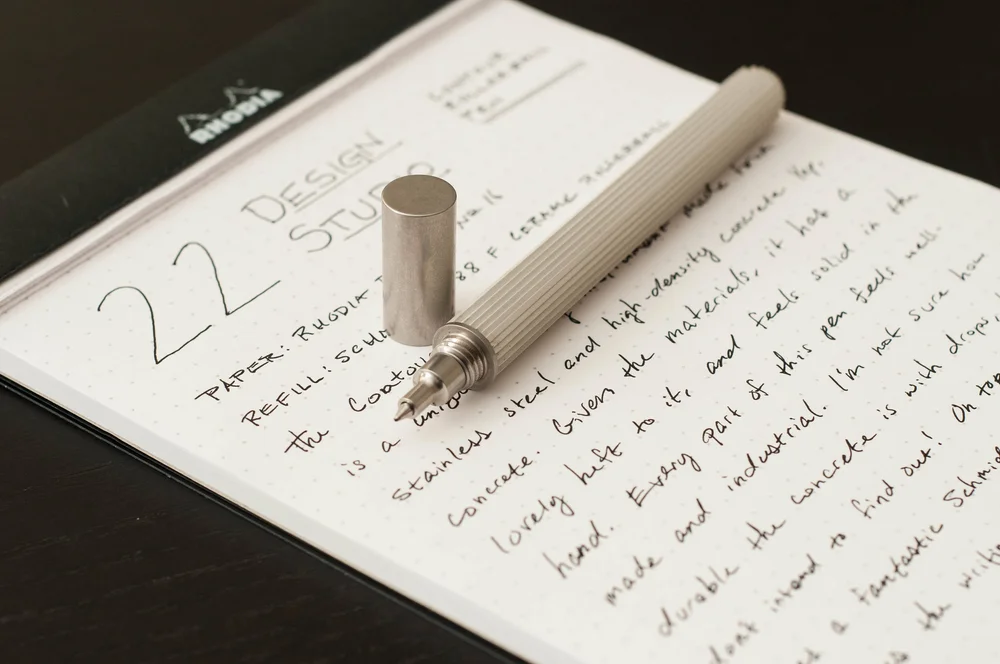 RHODIA
22
DESIGN
STUDIO
CONTOUR
ROLLERBALL
PEN
PAPER: RHODIA No 16
REFILL: SCHM 88 F CERAMIC ROLLERBALL
The Contour
is a unique made from
stainless steel and high-density concrete. Yep,
concrete. Given the materials, it has a
lovely heft to it, and feels solid in the
hand. Every part of this pen feels well-
made and industrial. I'm not sure how
durable the concrete is with drops,
don't intend to find out! On top
a fantastic Schmid
the writi